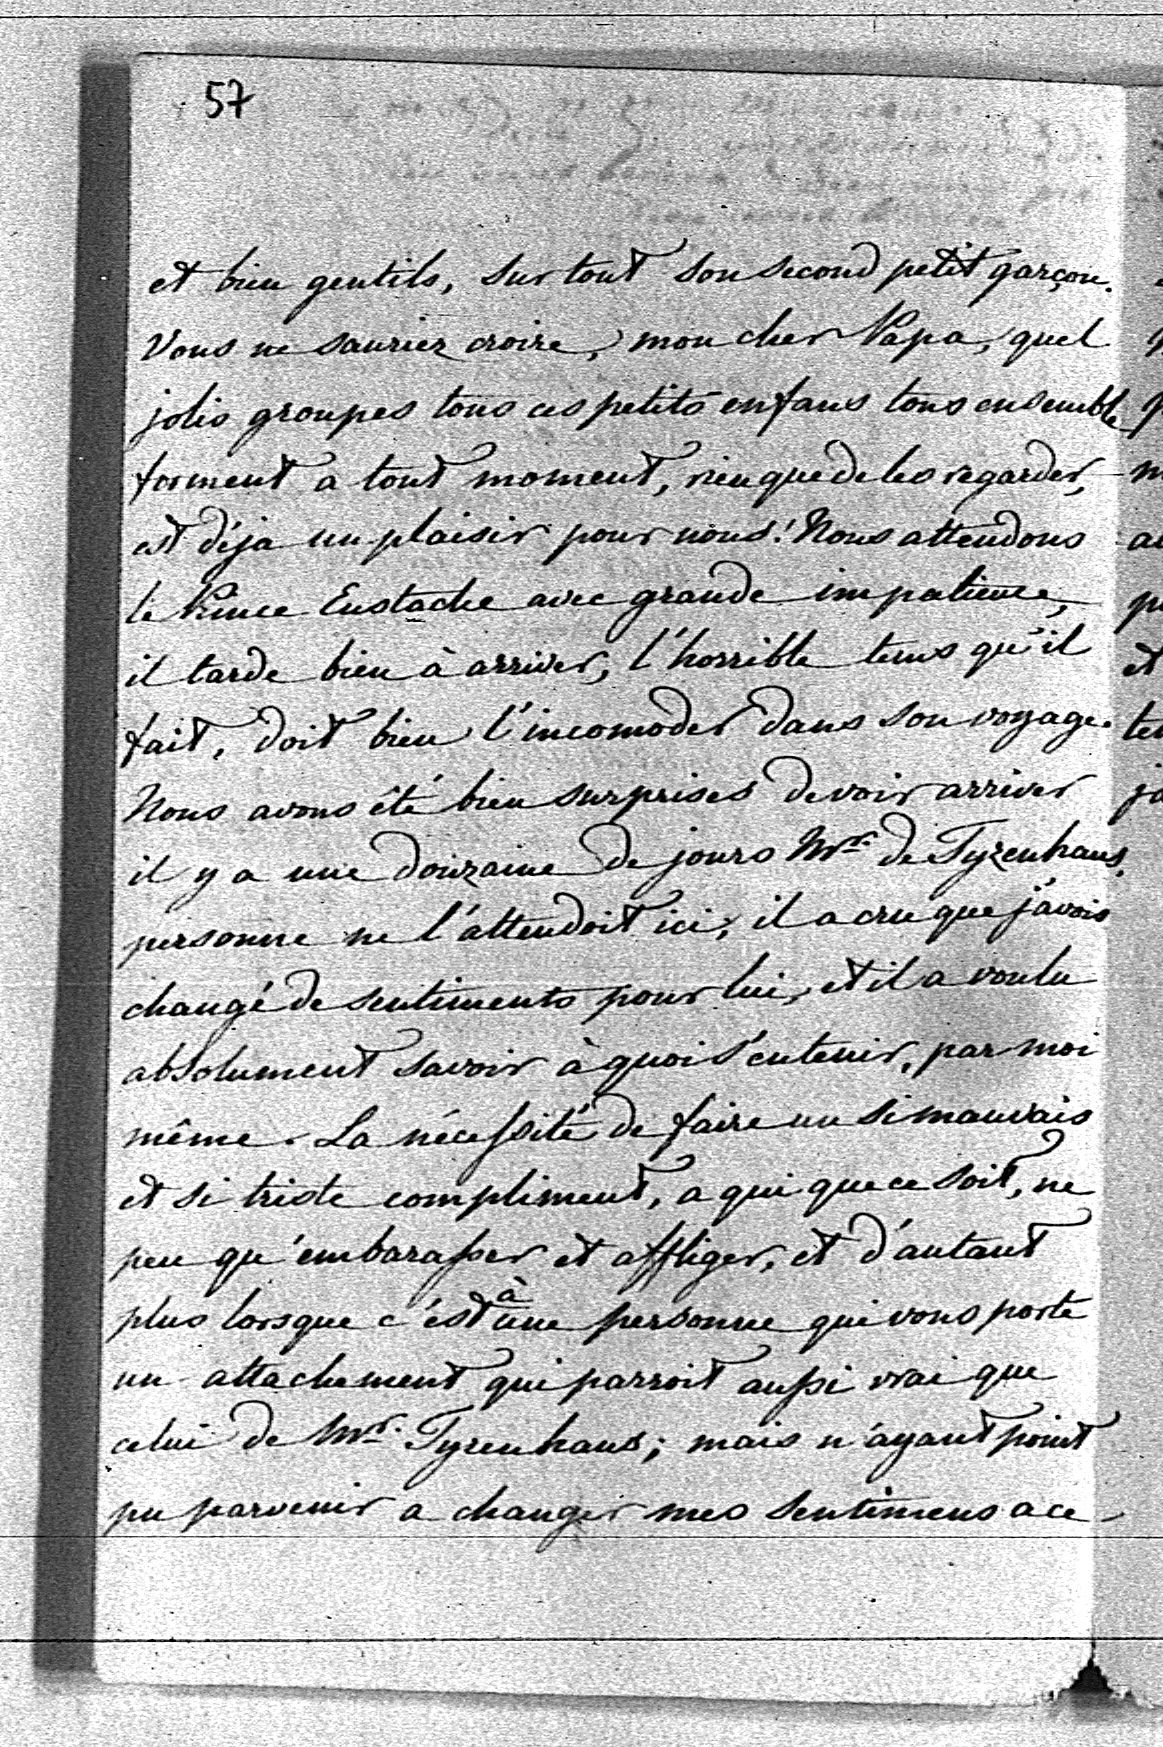 57
et bien gentils, sur tout son second petit garçon.
Vous ne sauriez croire, mon cher Papa, quel
jolis groupes tous ces petits enfans tous ensemble
forment a tout moment, rien que de les regarder,
est déja un plaisir pour nous! Nous attendons
le Prince Eustache avec grande impatience,
il tarde bien à arriver, l'horrible tems qu'il
fait, doit bien l'incomoder dans son voyage.
Nous avons été bien surprises de voir arriver
il y a une douzaine de jours Mr. de Tyzenhaus,
personne ne l'attendoit ici, il a cru que j'avois
changé de sentiments pour lui, et il a voulu
absolument savoir à quoi s'entenir, par moi
même. La nécessité de faire un si mauvais
et si triste compliment, a qui que ce soit, ne
peu qu'embarasser et affliger, et d'autant
plus lorsque c'ést à une personne qui vous porte
un attachement qui parroit aussi vrai que
celui de Mr. Tyzenhaus; mais n'ayant point
pu parvenir a changer mes sentimens a ce